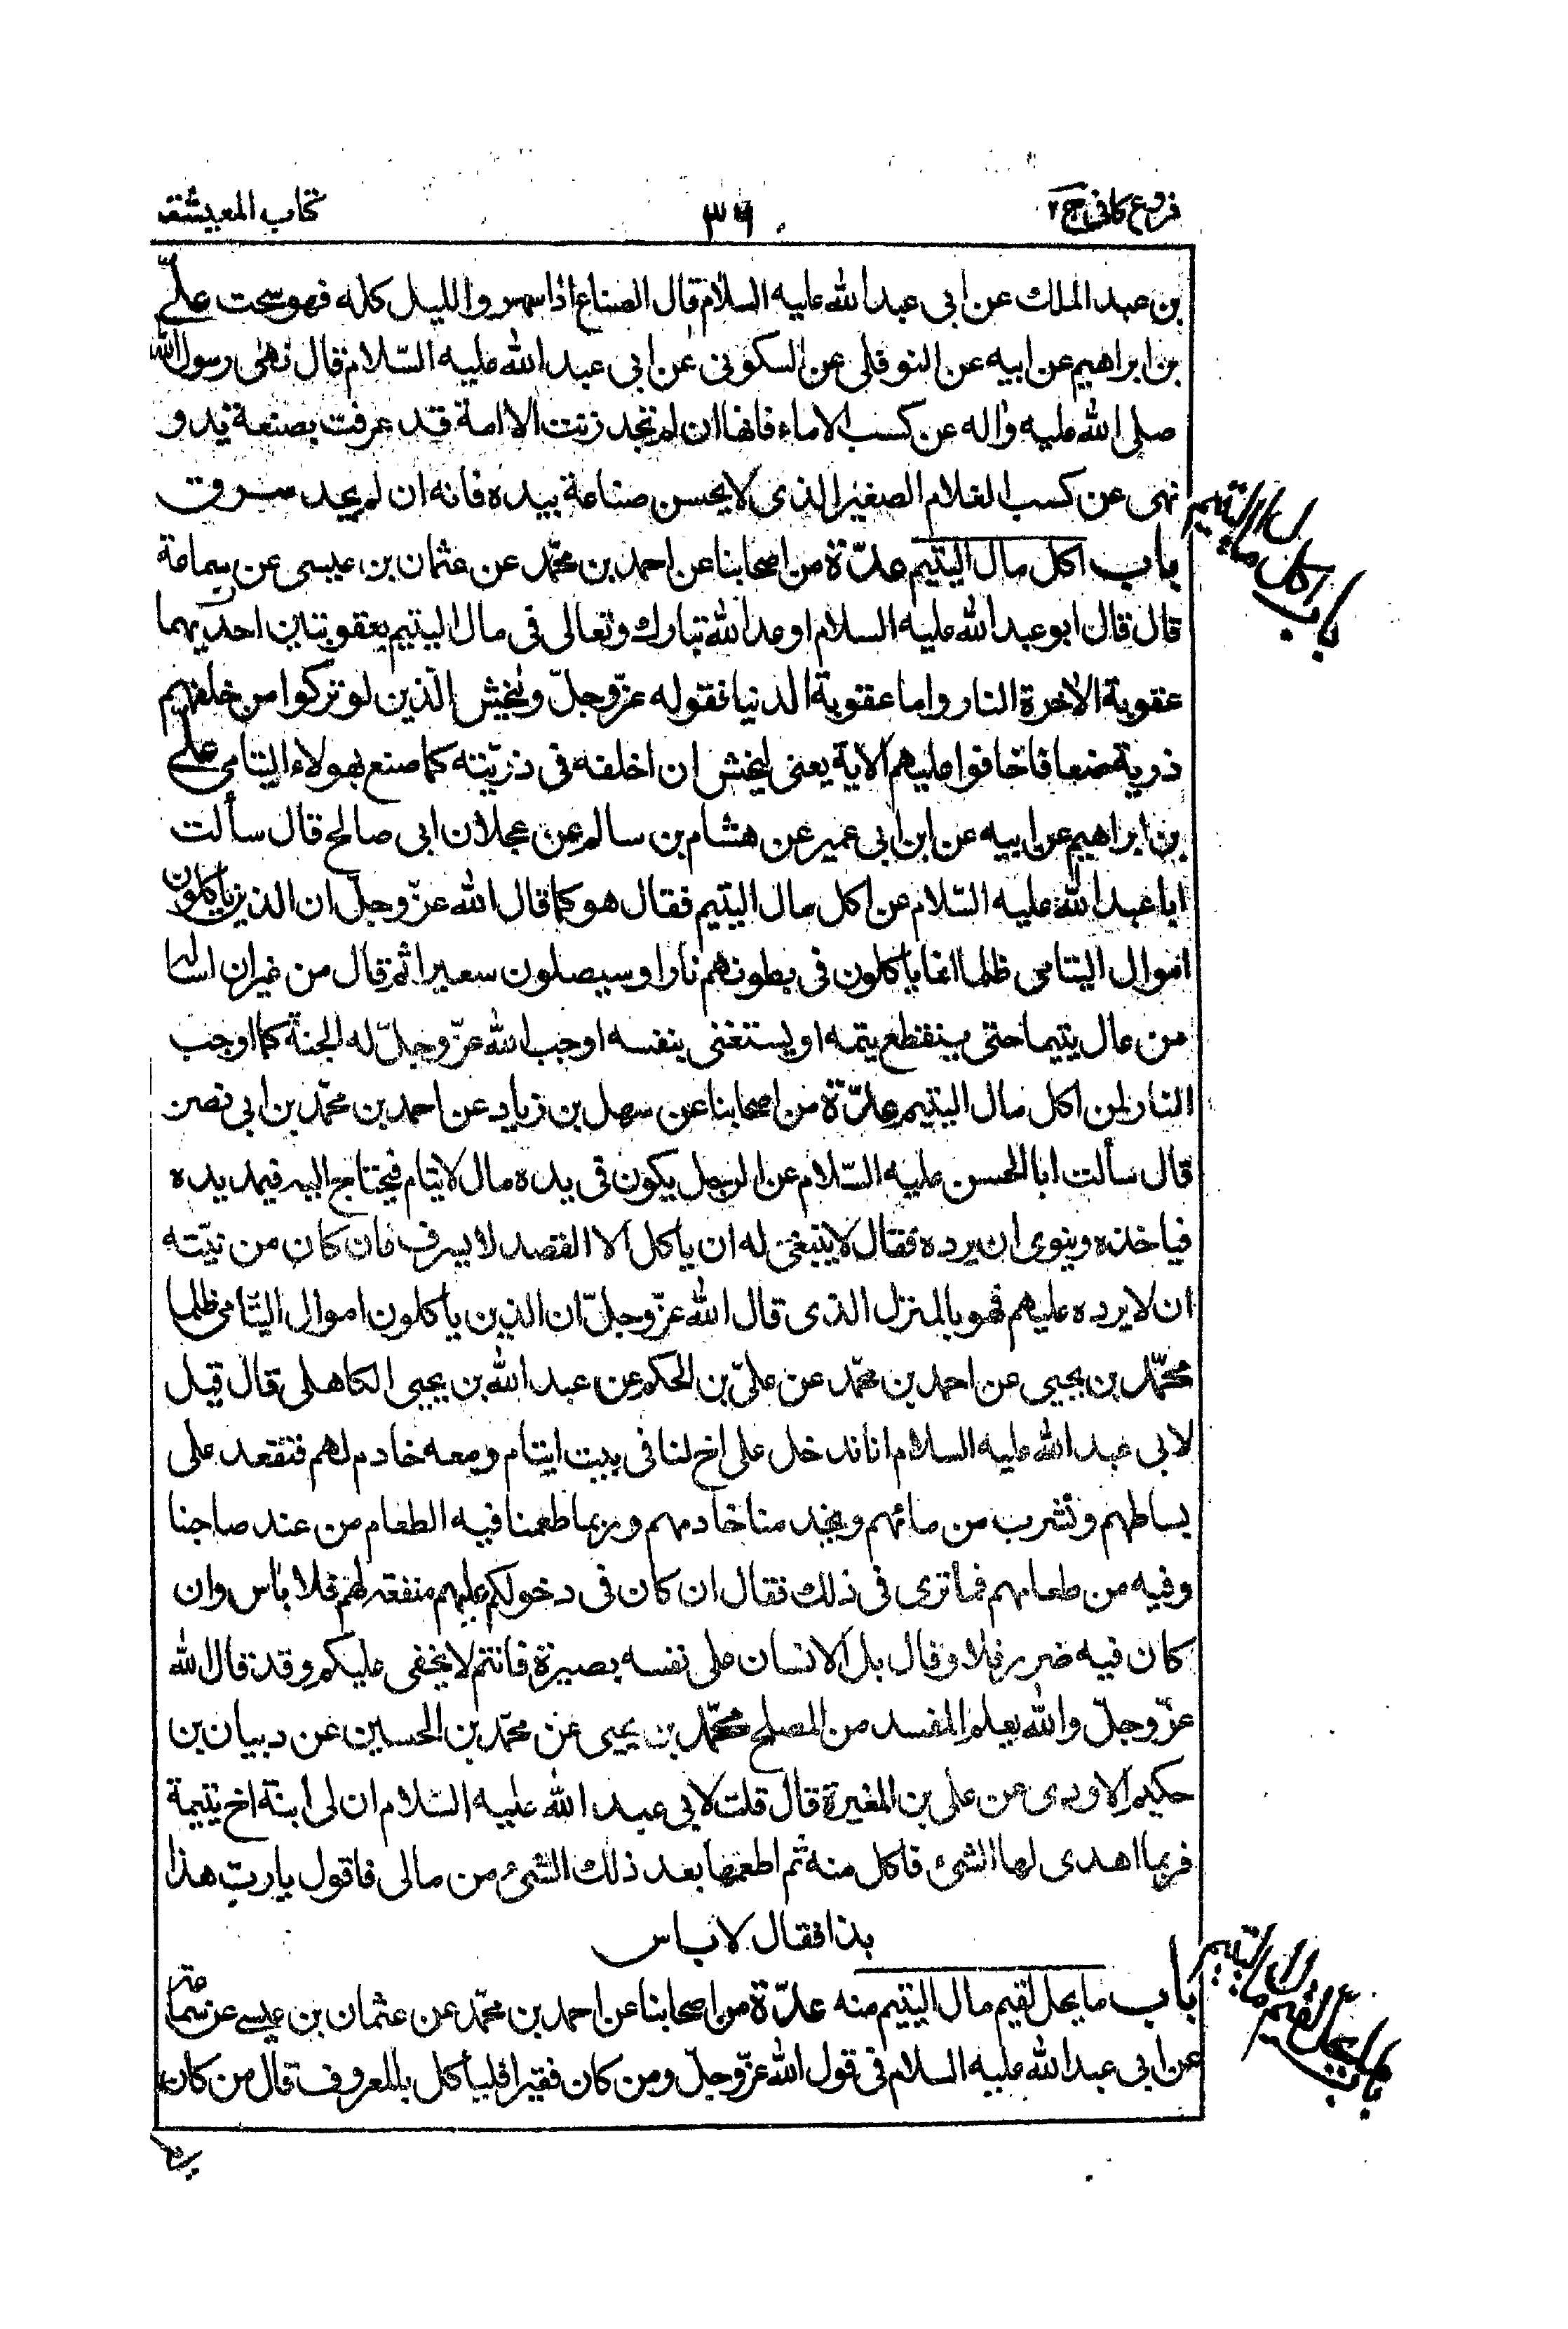 فروع كافى ج٢
٣٦
كتاب المعيشة
بن عبد الملك عن ابى عبد الله عليه السلام قال الصناع اذا سهروا الليل كله فهو سحت علىّ
بن ابراهيم عن ابيه عن النوفلى عن السكونى عن ابى عبد الله عليه السّلام قال نهى رسول الله
صلى الله عليه واله عن كسب الاماء فانها ان لم تجد زنت الا امة قد عرفت بصنعة يد و
نهى عن كسب الغلام الصغير الذى لا يحسن صناعة بيده فانه ان لم يجد سرق
باب اكل مال اليتيم عدّة من اصحابنا عن احمد بن محمّد عن عثمان بن عيسى عن سماعة
قال قال ابو عبد الله عليه السلام اوعد الله تبارك وتعالى فى مال اليتيم بعقوبتين احديهما
عقوبة الاخرة النار واما عقوبة الدنيا فقوله عزّ وجلّ وليخش الّذين لو تركوا من خلفهم
ذرية ضعافا خافوا عليهم الاية يعنى ليخش ان اخلفه فى ذرّيته كما صنع بهولاء اليتامى علىّ
بن ابراهيم عن ابيه عن ابن ابى عمير عن هشام بن سالم عن عجلان ابى صالح قال سألت
ابا عبد الله عليه السّلام عن اكل مال اليتيم فقال هو كما قال الله عزّ وجلّ ان الذين يأكلون
اموال اليتامى ظلما انما يأكلون فى بطونهم نارا وسيصلون سعيرا ثم قال من غير ان اساله
من عال يتيما حتى ينقطع يتمه او يستغنى بنفسه اوجب الله عزّ وجلّ له الجنة كما اوجب
النار لمن اكل مال اليتيم عدّة من اصحابنا عن سهل بن زياد عن احمد بن محمّد بن ابى نصر
قال سألت ابا الحسن عليه السّلام عن الرجل يكون فى يده مال لايتام فيحتاج اليه فيمد يده
فياخذه وينوى ان يرده فقال لا ينبغى له ان يأكل الا القصد لا يسرف فان كان من نيّته
ان لا يرده عليهم فهو بالمنزل الذى قال الله عزّ وجلّ ان الذين يأكلون اموال اليتامى ظلما
محمّد بن يحيى عن احمد بن محمّد عن علىّ بن الحكم عن عبد الله بن يحيى الكاهلى قال قيل
لابى عبد الله عليه السلام انا ندخل على اخ لنا فى بيت ايتام ومعه خادم لهم فنقعد على
بساطهم ونشرب من مائهم ويخدمنا خادمهم وربما طعمنا فيه الطعام من عند صاحبنا
وفيه من طعامهم فما ترى فى ذلك فقال ان كان فى دخولكم عليهم منفعة لهم فلا بأس وان
كان فيه ضرر فلا وقال بل الانسان على نفسه بصيرة فانتم لا يخفى عليكم وقد قال الله
عزّ وجلّ والله يعلم المفسد من المصلح محمّد بن يحيى عن محمّد بن الحسين عن دبيان بن
حكيم الاودى عن على بن المغيرة قال قلت لابى عبد الله عليه السّلام ان لى ابنة اخ يتيمة
فربما اهدى لها الشئ فاكل منه ثم اطعمها بعد ذلك الشئ من مالى فاقول يا ربّ هذا
بذا فقال لا بأس
باب ما يحل لقيم مال اليتيم منه عدّة من اصحابنا عن احمد بن محمّد عن عثمان بن عيسى عن سماعة
عن ابى عبد الله عليه السلام فى قول الله عزّ وجلّ ومن كان فقيرا فليأكل بالمعروف قال من كان
باب اكل مال اليتيم
باب ما يحل لقيم مال اليتيم